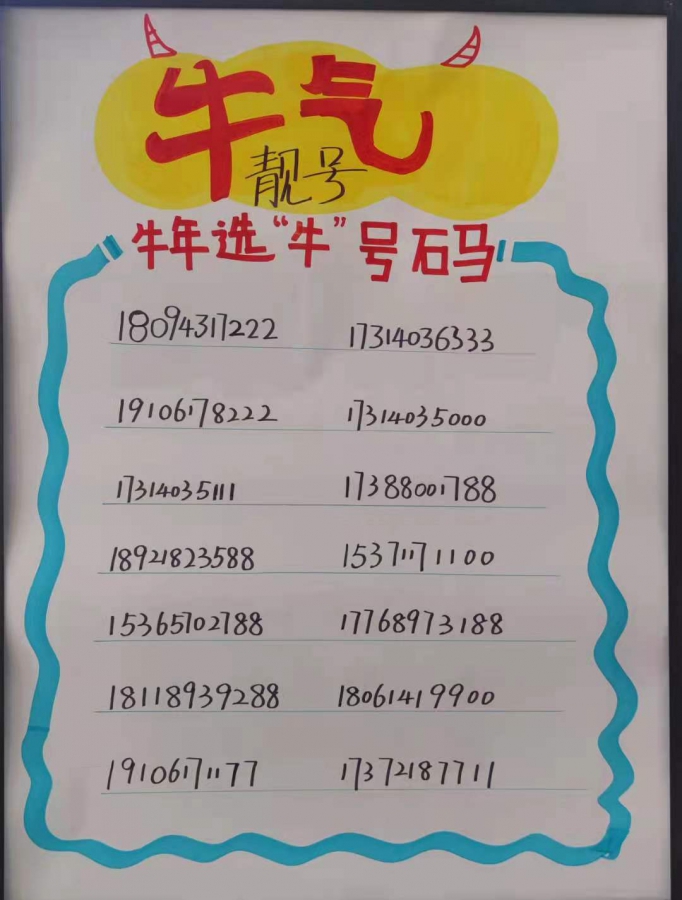 牛气
靓号
牛年选“牛”号码
18094317222 17314036333
19106178222 17314035000
17314035111 17388001788
18921823588 15371171100
15365702788 17768973188
18118939288 18061419900
19106171177 17372187711